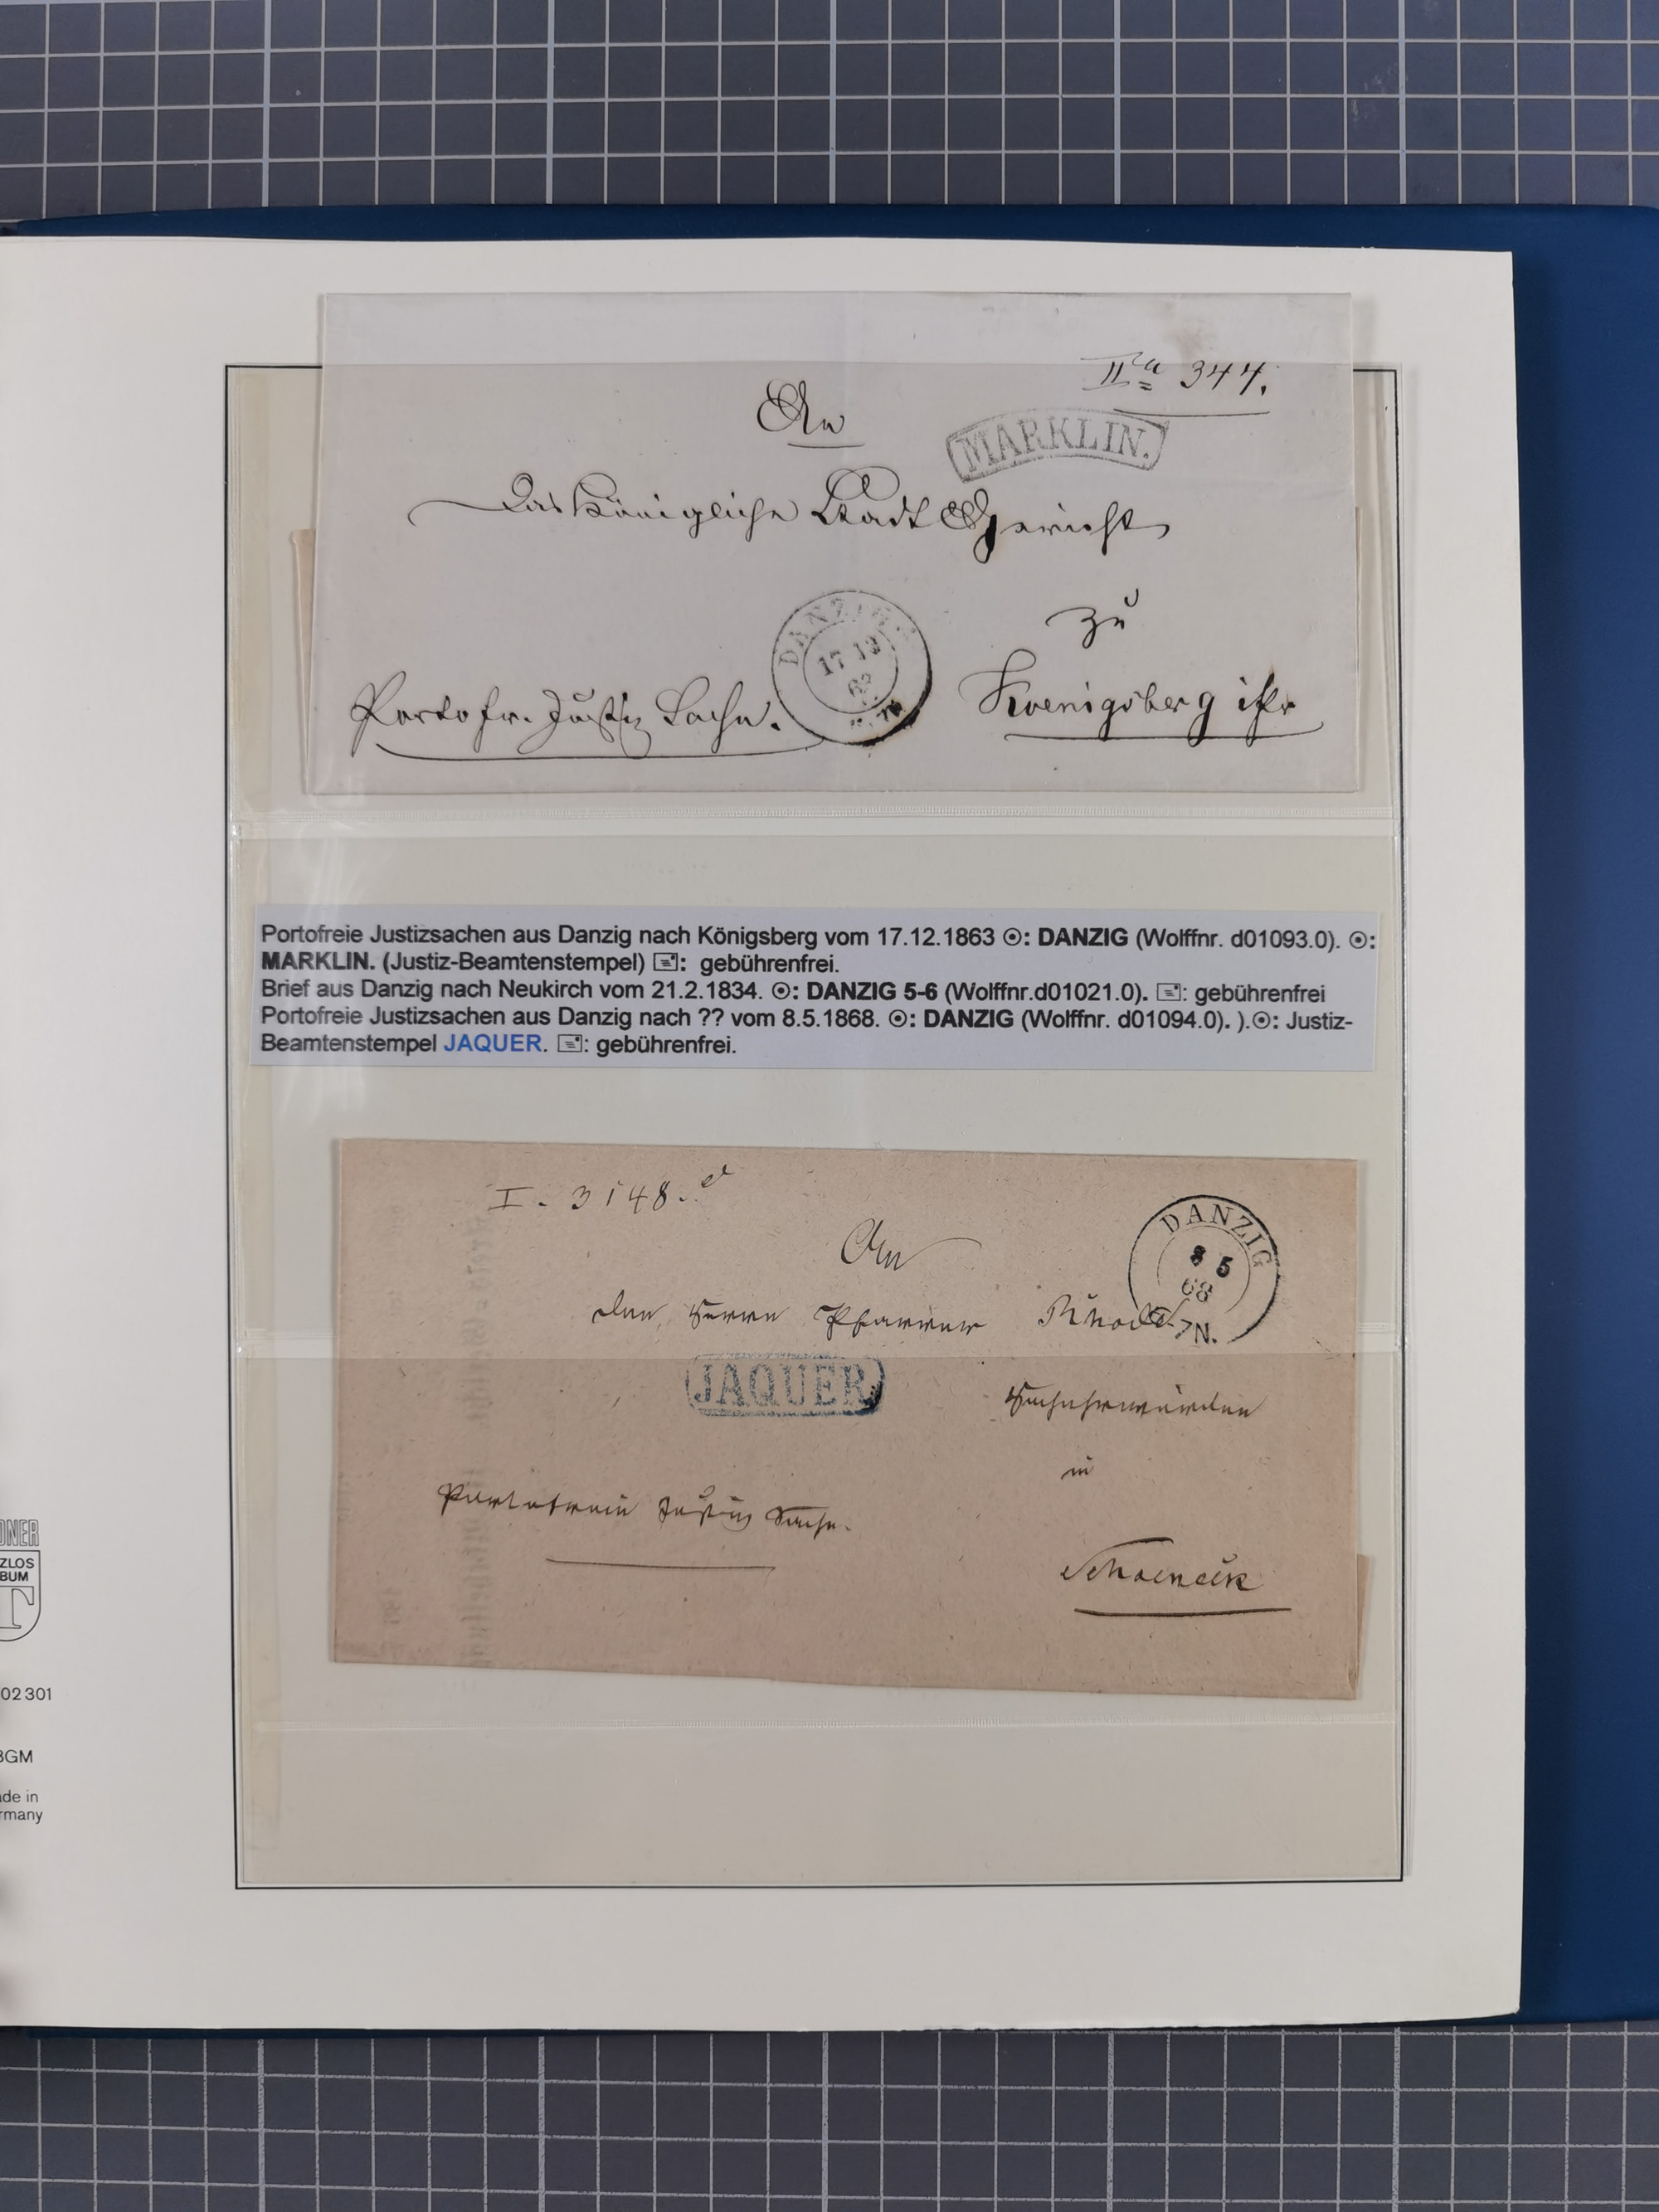 IIa 344.
An
MARKLIN.
Das Königliche Stadt Gericht
zu
DANZIG
17 12
Porto fr. Justiz Sache.
Koenigsberg i/Pr
Portofreie Justizsachen aus Danzig nach Königsberg vom 17.12.1863 ⊙: DANZIG (Wolffnr. d01093.0). ⊙:
MARKLIN. (Justiz-Beamtenstempel) 🖃: gebührenfrei.
Brief aus Danzig nach Neukirch vom 21.2.1834. ⊙: DANZIG 5-6 (Wolffnr.d01021.0). 🖃: gebührenfrei
Portofreie Justizsachen aus Danzig nach ?? vom 8.5.1868. ⊙: DANZIG (Wolffnr. d01094.0). ).⊙: Justiz-
Beamtenstempel JAQUER. 🖃: gebührenfrei.
I. 3148.
DANZIG
8 5
68
7N.
An
den Herrn Pfarrer
JAQUER
Hochehrwürden
in
Portofreie Justiz Sache.
Schoeneck
02 301
BGM
de in
rmany